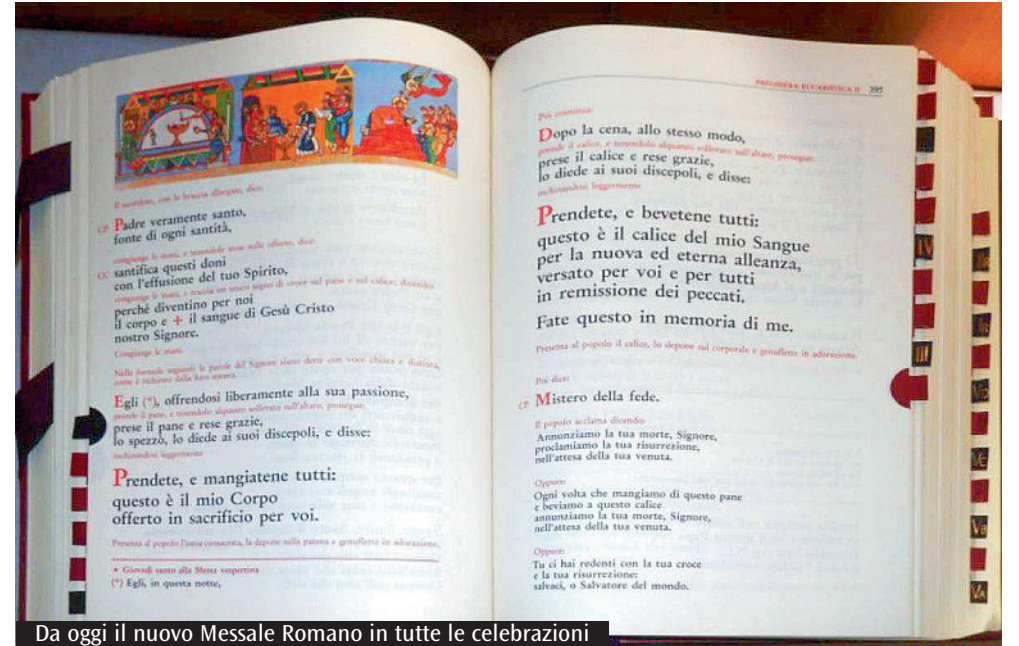 Il sacerdote, con le braccia allargate, dice:
CP Padre veramente santo,
fonte di ogni santità,
congiunge le mani, e tenendole stese sulle offerte, dice:
CC santifica questi doni
con l'effusione del tuo Spirito,
congiunge le mani, e traccia un unico segno di croce sul pane e sul calice, dicendo:
perché diventino per noi
il corpo e + il sangue di Gesù Cristo
nostro Signore.
Congiunge le mani.
Nelle formule seguenti le parole del Signore siano dette con voce chiara e distinta,
come è richiesto dalla loro natura.
Egli (*), offrendosi liberamente alla sua passione,
prende il pane, e tenendolo alquanto sollevato sull'altare, prosegue:
prese il pane e rese grazie,
lo spezzò, lo diede ai suoi discepoli, e disse:
inchinandosi leggermente
Prendete, e mangiatene tutti:
questo è il mio Corpo
offerto in sacrificio per voi.
Presenta al popolo l'ostia consacrata, la depone sulla patena e genuflette in adorazione.
* Giovedì santo alla Messa vespertina
(*) Egli, in questa notte,
PREGHIERA EUCARISTICA II 395
Poi continua:
Dopo la cena, allo stesso modo,
prende il calice, e tenendolo alquanto sollevato sull'altare, prosegue:
prese il calice e rese grazie,
lo diede ai suoi discepoli, e disse:
inchinandosi leggermente
Prendete, e bevetene tutti:
questo è il calice del mio Sangue
per la nuova ed eterna alleanza,
versato per voi e per tutti
in remissione dei peccati.
Fate questo in memoria di me.
Presenta al popolo il calice, lo depone sul corporale e genuflette in adorazione.
Poi dice:
CP Mistero della fede.
Il popolo acclama dicendo:
Annunziamo la tua morte, Signore,
proclamiamo la tua risurrezione,
nell'attesa della tua venuta.
Oppure:
Ogni volta che mangiamo di questo pane
e beviamo a questo calice
annunziamo la tua morte, Signore,
nell'attesa della tua venuta.
Oppure:
Tu ci hai redenti con la tua croce
e la tua risurrezione:
salvaci, o Salvatore del mondo.
IV
III
VC
VB
VA
Da oggi il nuovo Messale Romano in tutte le celebrazioni